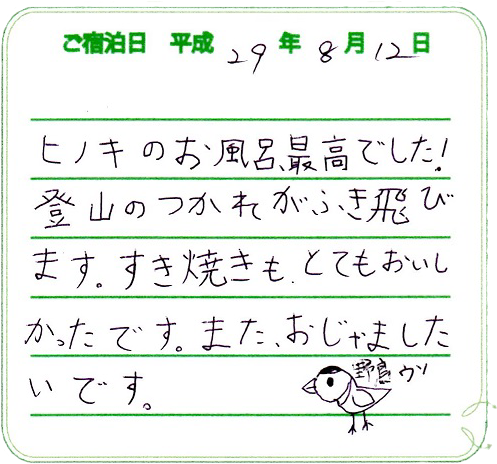 ご宿泊日 平成 29 年 8 月 12 日
ヒノキのお風呂、最高でした!
登山のつかれがふき飛び
ます。すき焼きも、とてもおいし
かったです。また、おじゃました
いです。
野鳥 ウソ